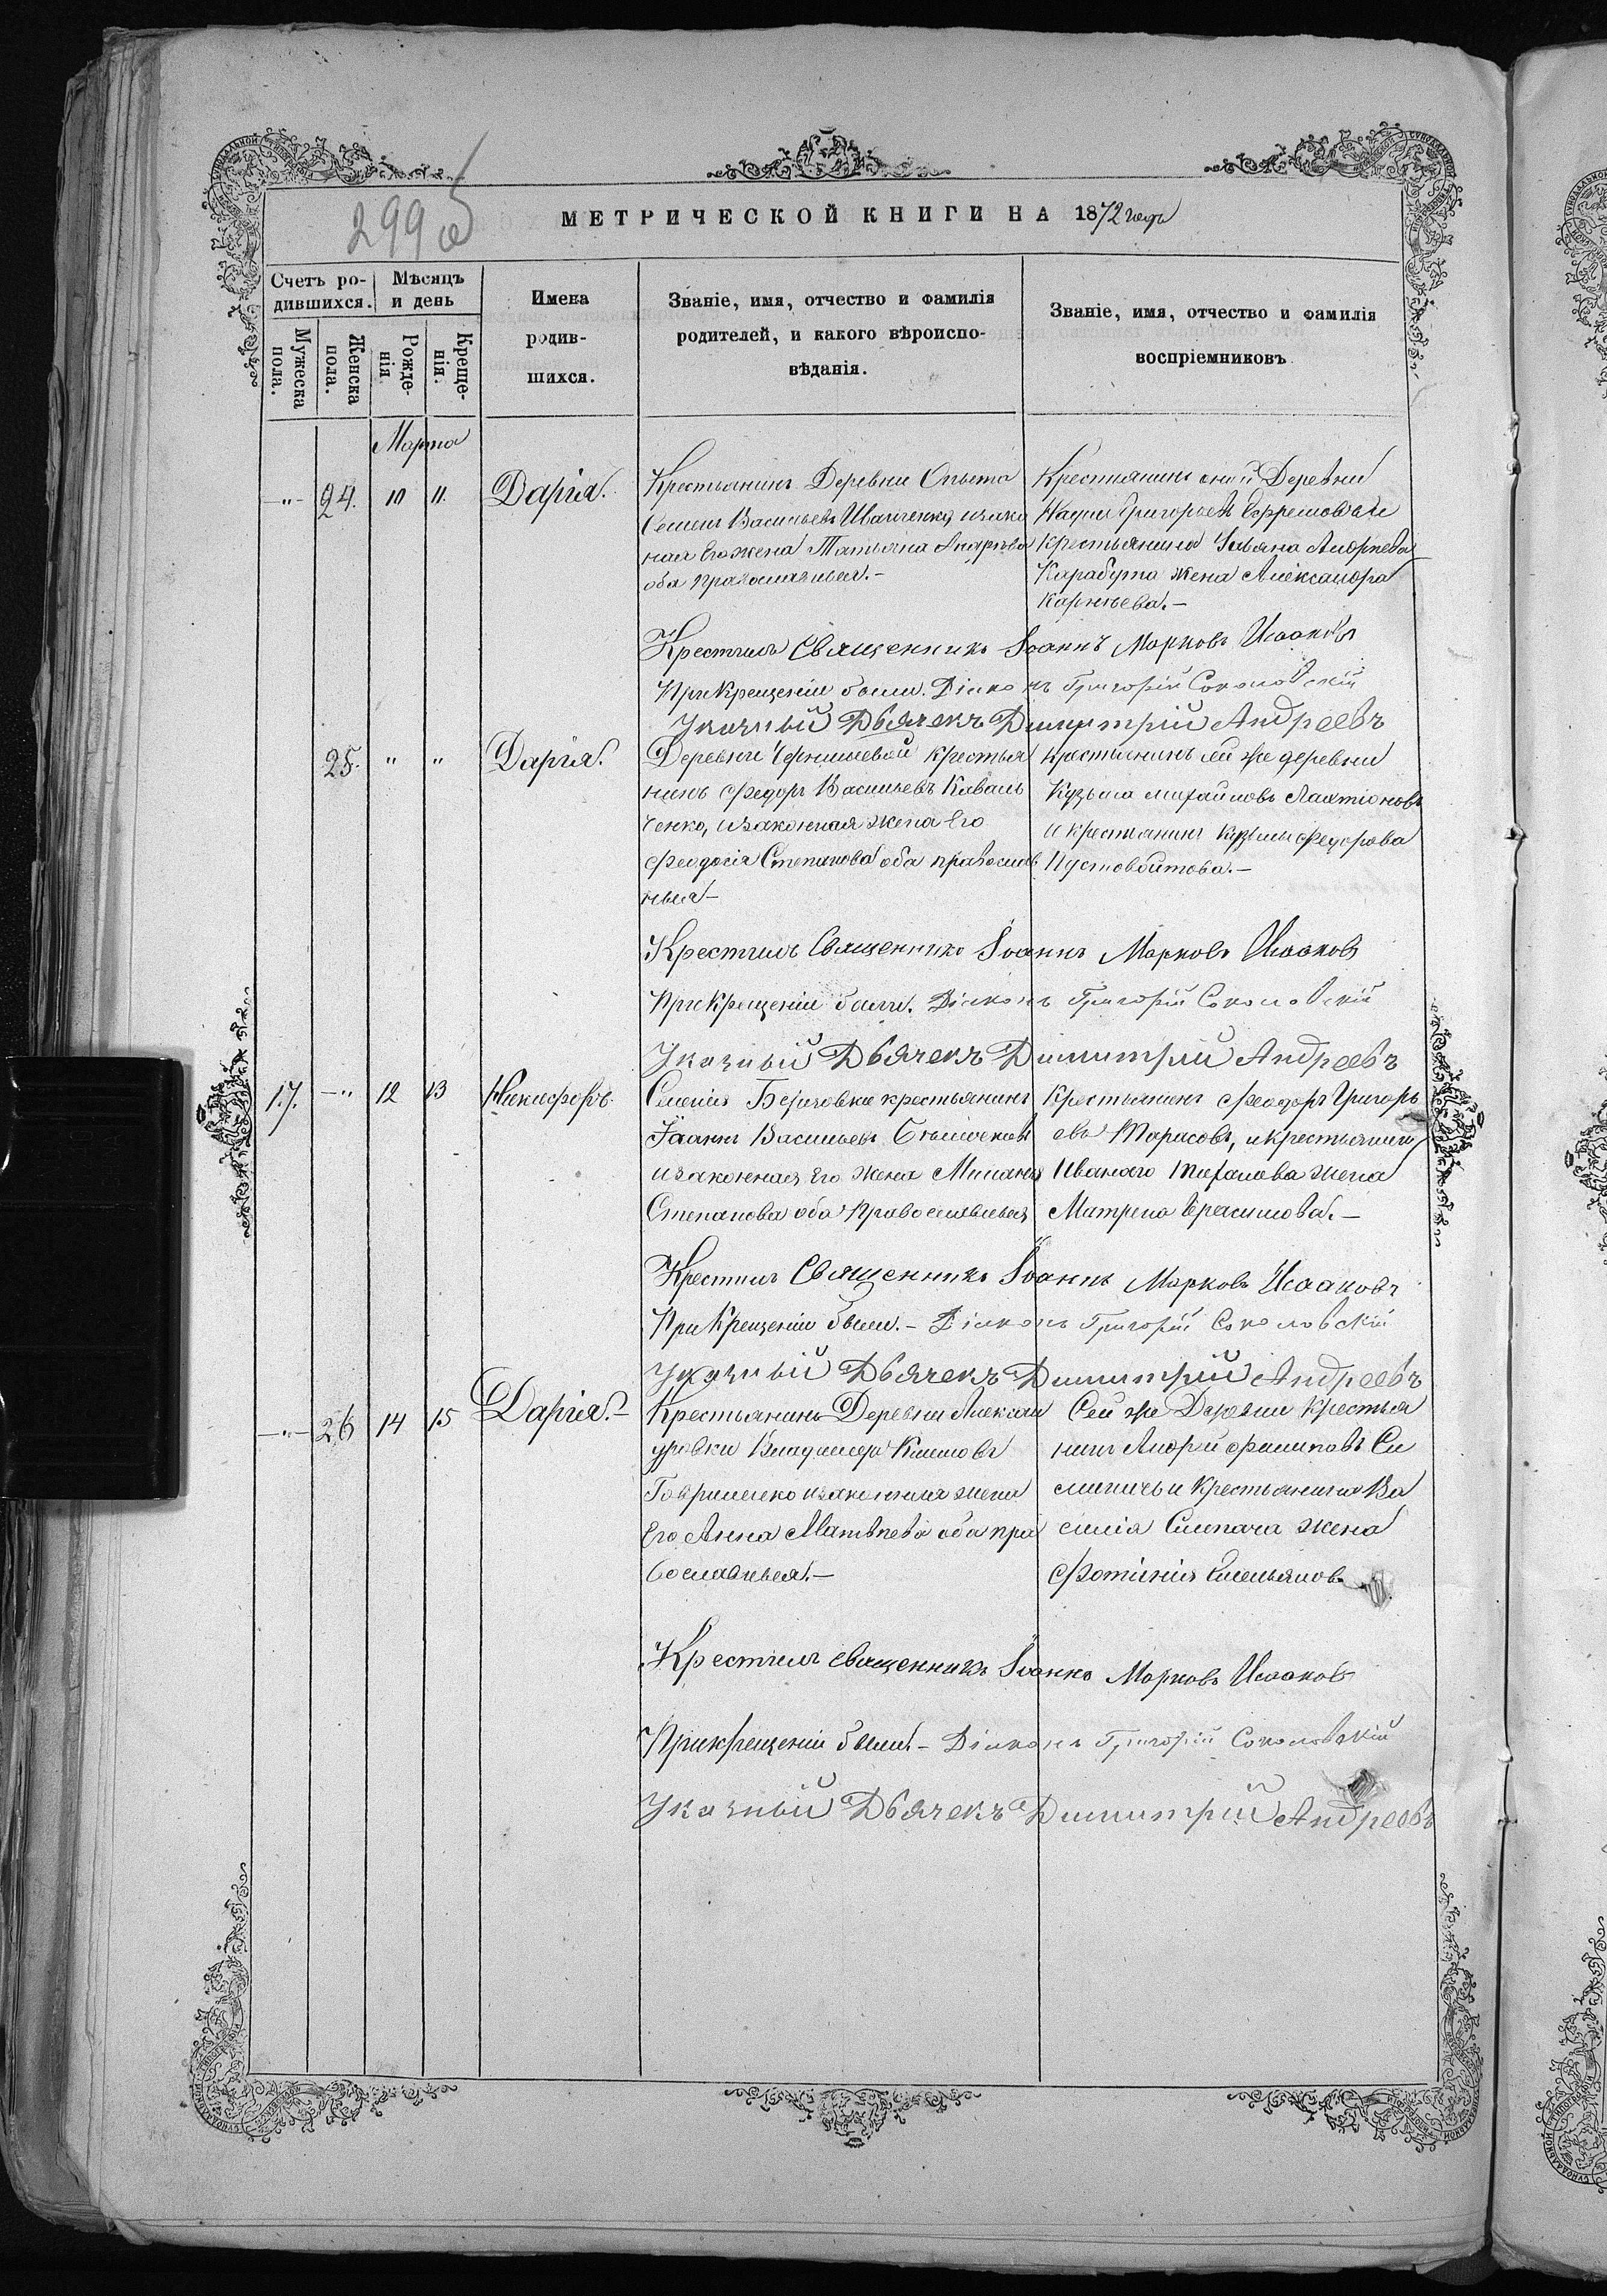 299 об
МЕТРИЧЕСКОЙ КНИГИ НА 1872 годъ
Счетъ ро-
дившихся.
Мужеска
пола.
Женска
пола.
Мѣсяцъ
и день
Рожде-
нія
Креще-
нія.
Имена
родив-
шихся.
Званіе, имя, отчество и фамилія
родителей, и какого вѣроиспо-
вѣданія.
Званіе, имя, отчество и фамилія
воспріемниковъ
Марта
-"- 24. 10 11. Дарія.
Крестьянинъ Деревни Опыта
Семенъ Васильевъ Иванченко, изако
ная Его жена Татьяна Андреева
оба православныя.-
Крестьянинъ оной Деревни
Наумъ Григорьевъ Ефремовъ и
Крестьянина Ульяна Андреева
Карабута жена Александра
Карнѣева.-
Крестилъ Священникъ Іоаннъ Марковъ Исааковъ
При Крещеніи были. Діаконъ Григорій Соколовскій
Указный Дьячекъ Димитрій Андреевъ
25. " " Дарія.
Деревни Чернышевой крестья
нинъ Федоръ Васильевъ Коваль
ченко, изаконная жена Его
Феодосія Степанова оба православ
ныя-
крестьянинъ сей же деревни
Кузьма михайловъ Лахтіоновъ
и крестьянина Федорова
Пустовойтова.-
Крестилъ Священникъ Іоаннъ Марковъ Исааковъ
При Крещеніи были. Діаконъ Григорій Соколовскій
Указный Дьячекъ Димитрій Андреевъ
17. -" 12 13 Никифоръ.
Селенія крестьянинъ
Іоаннъ Васильевъ
изаконная Его жена
Степанова оба Православныя
Крестьянинъ Феодоръ Григорь
евъ Тарасовъ, и крестьянина
Иванаго жена
Матрена Герасимова.-
Крестилъ Священникъ Іоаннъ Марковъ Исааковъ
При Крещеніи были.- Діаконъ Григорій Соколовскій
Указный Дьячекъ Димитрій Андреевъ
-"- 26 14 15 Дарія.-
Крестьянинъ Деревни Алексан
дровки Владимеръ Климовъ
Гавриленко изаконная жена
Его Анна Матвѣева оба пра
вославныя.-
Сей же Деревни Крестья
нинъ Андрей филиповъ Сы
и Крестьянина Ва
силія жена
Фотинія Емельянов
Крестилъ священникъ Іоаннъ Марковъ Исааковъ
При крещеніи были.- Діаконъ Григорій Соколовскій
Указный Дьячекъ Димитрій Андреевъ